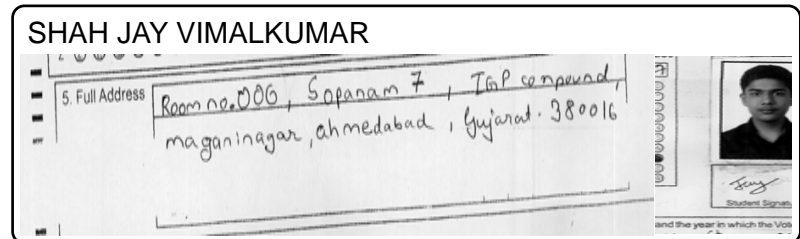 SHAH JAY VIMALKUMAR
5. Full Address
Room no.006, Sopanam 7, IGP compound,
maganinagar, ahmedabad, Gujarat. 380016
7
Jay
Student Signat
and the year in which the Vot